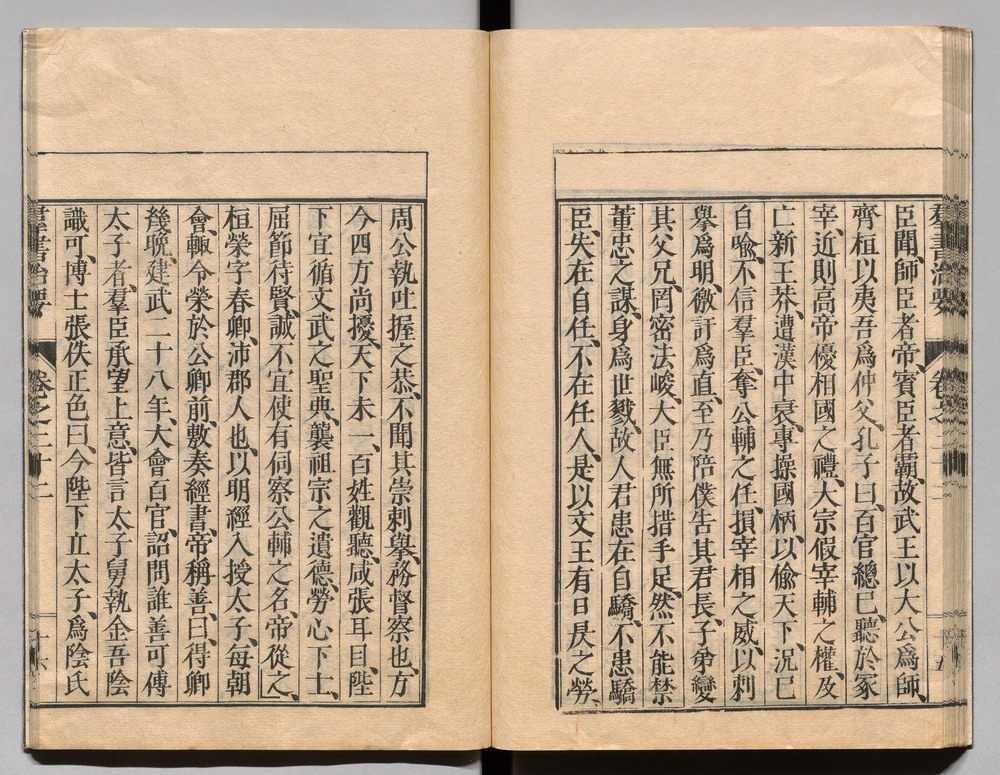 羣書治要　卷之二十二
臣聞、師臣者帝、賓臣者霸、故武王以大公爲師、
齊桓以夷吾爲仲父、孔子曰、百官總已、聽於冢
宰、近則高帝優相國之禮、大宗假宰輔之權、及
亡新王莽、遭漢中衰、專操國柄、以偸天下、況已
自喩、不信羣臣、奪公輔之任、損宰相之威、以刺
擧爲明、徼訐爲直、至乃陪僕吿其君長、子弟變
其父兄、罔密法峻、大臣無所措手足、然不能禁
董忠之謀、身爲世戮、故人君患在自驕、不患驕
臣、失在自任、不在任人、是以文王有日昃之勞、
周公執吐握之恭、不聞其崇刺擧、務督察也、方
今四方尚擾、天下未一、百姓觀聽、咸張耳目、陛
下宜循文武之聖典、襲祖宗之遺德、勞心下士、
屈節待賢、誠不宜使有伺察公輔之名、帝從之、」
桓榮字春卿、沛郡人也、以明經入授太子、每朝
會、輒令榮於公卿前、敷奏經書、帝稱善、曰、得卿
幾晚、建武二十八年、大會百官、詔問誰善可傅
太子者、羣臣承望上意、皆言太子舅執金吾陰
識可、博士張佚正色曰、今陛下立太子、爲陰氏
羣書治要　卷之二十二　十六